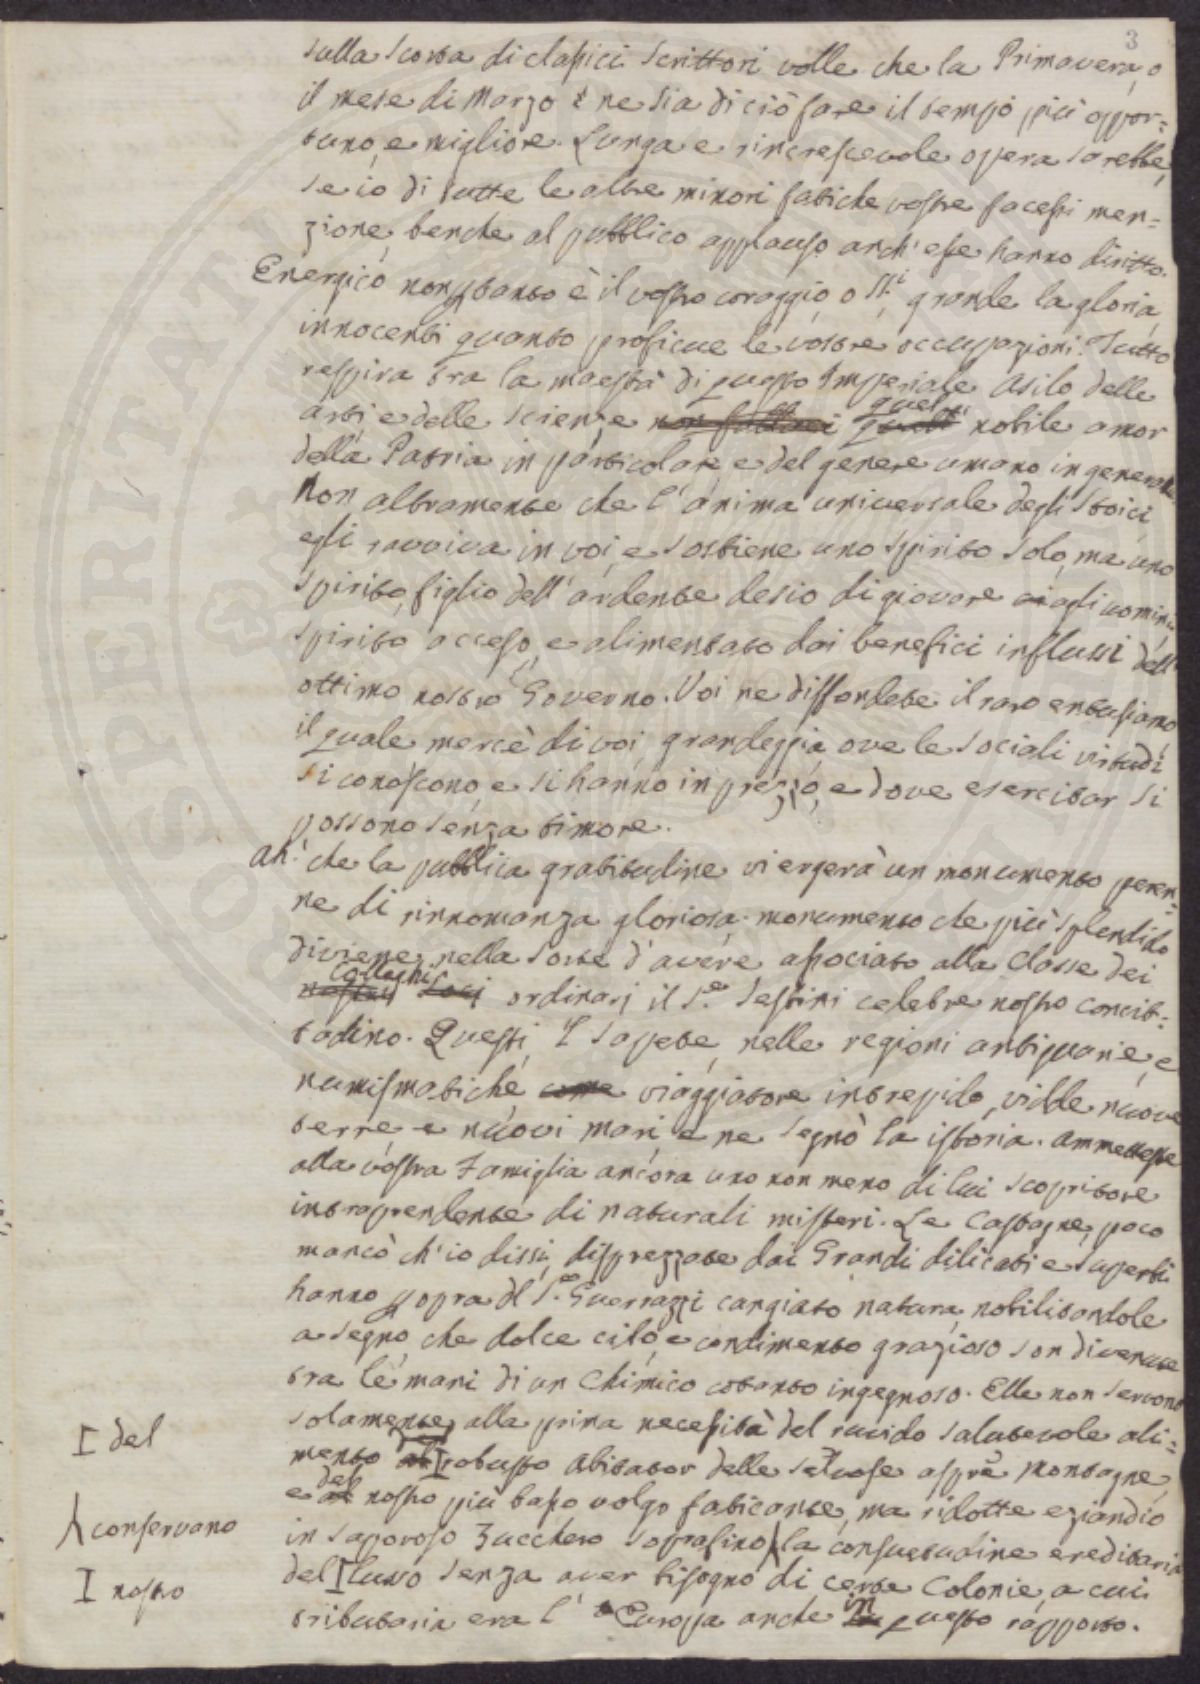 3
sulla scorta di classici scrittori volle che la Primavera, o
il mese di Marzo ne sia di ciò fare il tempo più oppor=
tuno, e migliore. Lunga e rincrescevole opera sarebbe,
se io di tutte le altre minori fatiche vostre facessi men=
zione, benche al pubblico applauso anch' esse hanno diritto.
Energico nonpertanto è il vostro coraggio, o SS.i, grande la gloria,
innocenti quanto proficue le vostre occupazioni. Tutto
respira tra la maestà di questo Imperiale Asilo delle
arti e delle scienze quel nobile amor
della Patria in particolare, e del genere umano in generale
Non altramente che l'anima universale degli Stoici
egli ravviva in voi, e sostiene uno spirito solo, ma uno
spirito, figlio dell'ardente desio di giovare agli uomini
spirito acceso, e alimentato dai benefici influssi dell'
ottimo nostro Governo. Voi ne diffondete il raro entusiasmo
il quale mercè di voi, grandeggia ove le sociali virtudi
si conoscono, e si hanno in prezzo, e dove esercitar si
possono senza timore.
Ah! che la pubblica gratitudine vi ergerà un monumento peren=
ne di rinnomanza gloriosa: monumento che più splendido
diviene nella sorte d'avere associato alla Classe dei
Colleghi
nostri Socj ordinarj il S.e Sestini celebre nostro concit=
tadino. Questi, 'l sapete, nelle regioni antiquarie, e
numismatiche come viaggiatore intrepido, vidde nuove
terre e nuovi mari, e ne segnò la istoria. Ammetteste
alla vostra Famiglia ancora uno non meno di lui scopritore
intraprendente di naturali misteri. Le Castagne, poco
mancò ch'io dissi, disprezzate dai Grandi dilicati e superbi
hanno p opra del S.e Guerrazzi cangiato natura, nobilitandole
a segno, che dolce cibo, e condimento grazioso son divenute
tra le mani di un Chimico cotanto ingegnoso. Elle non servono
solamente, alla prima necessità del ruvido salutevole ali=
mento I robusto abitator delle selvose aspre montagne,
e del nostro più basso volgo faticante, ma ridotte eziandio
in saporoso Zucchero soprafino la consuetudine ereditaria
del I lusso senza aver bisogno di certe Colonie, a cui
tributaria era l' Europa anche in questo rapporto.
I del
conservano
I nostro